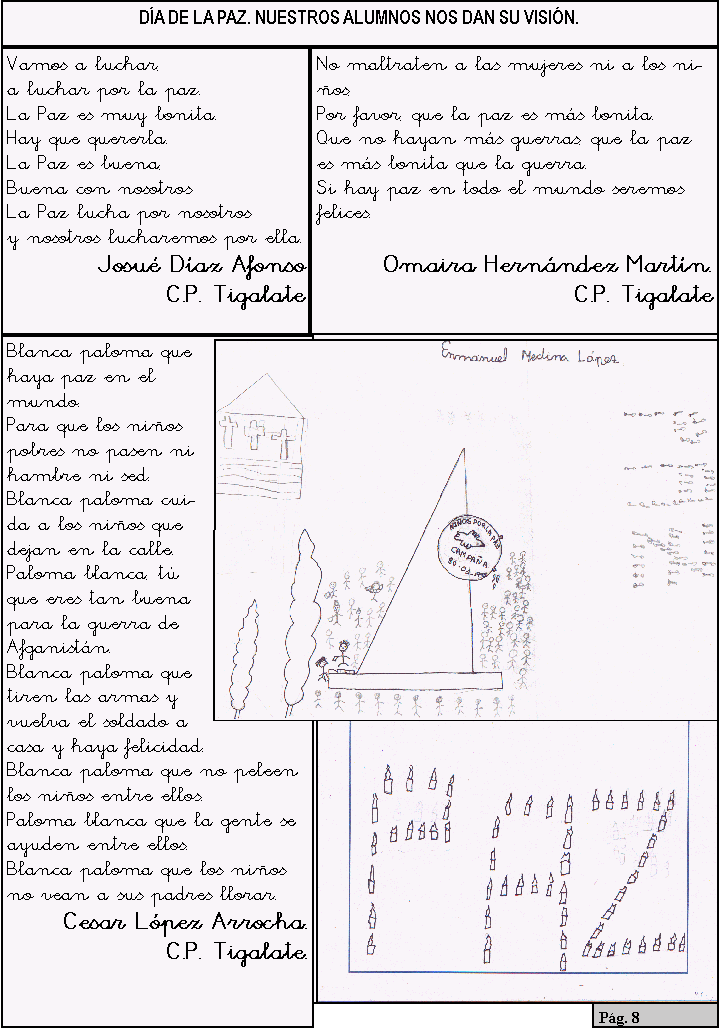 DÍA DE LA PAZ. NUESTROS ALUMNOS NOS DAN SU VISIÓN.
Vamos a luchar,
a luchar por la paz.
La Paz es muy bonita.
Hay que quererla.
La Paz es buena,
Buena con nosotros
La Paz lucha por nosotros
y nosotros lucharemos por ella.
Josué Díaz Afonso
C.P. Tigalate
No maltraten a las mujeres ni a los ni-
ños
Por favor, que la paz es más bonita.
Que no hayan más guerras, que la paz
es más bonita que la guerra.
Si hay paz en todo el mundo seremos
felices.
Omaira Hernández Martín.
C.P. Tigalate
Blanca paloma que
haya paz en el
mundo.
Para que los niños
pobres no pasen ni
hambre ni sed.
Blanca paloma cui-
da a los niños que
dejan en la calle.
Paloma blanca, tú
que eres tan buena
para la guerra de
Afganistán.
Blanca paloma que
tiren las armas y
vuelva el soldado a
casa y haya felicidad.
Blanca paloma que no peleen
los niños entre ellos.
Paloma blanca que la gente se
ayuden entre ellos.
Blanca paloma que los niños
no vean a sus padres llorar.
Cesar López Arrocha.
C.P. Tigalate.
Enmanuel Medina López
NIÑOS POR LA PAZ
CAMPAÑA
PAZ
Pág. 8